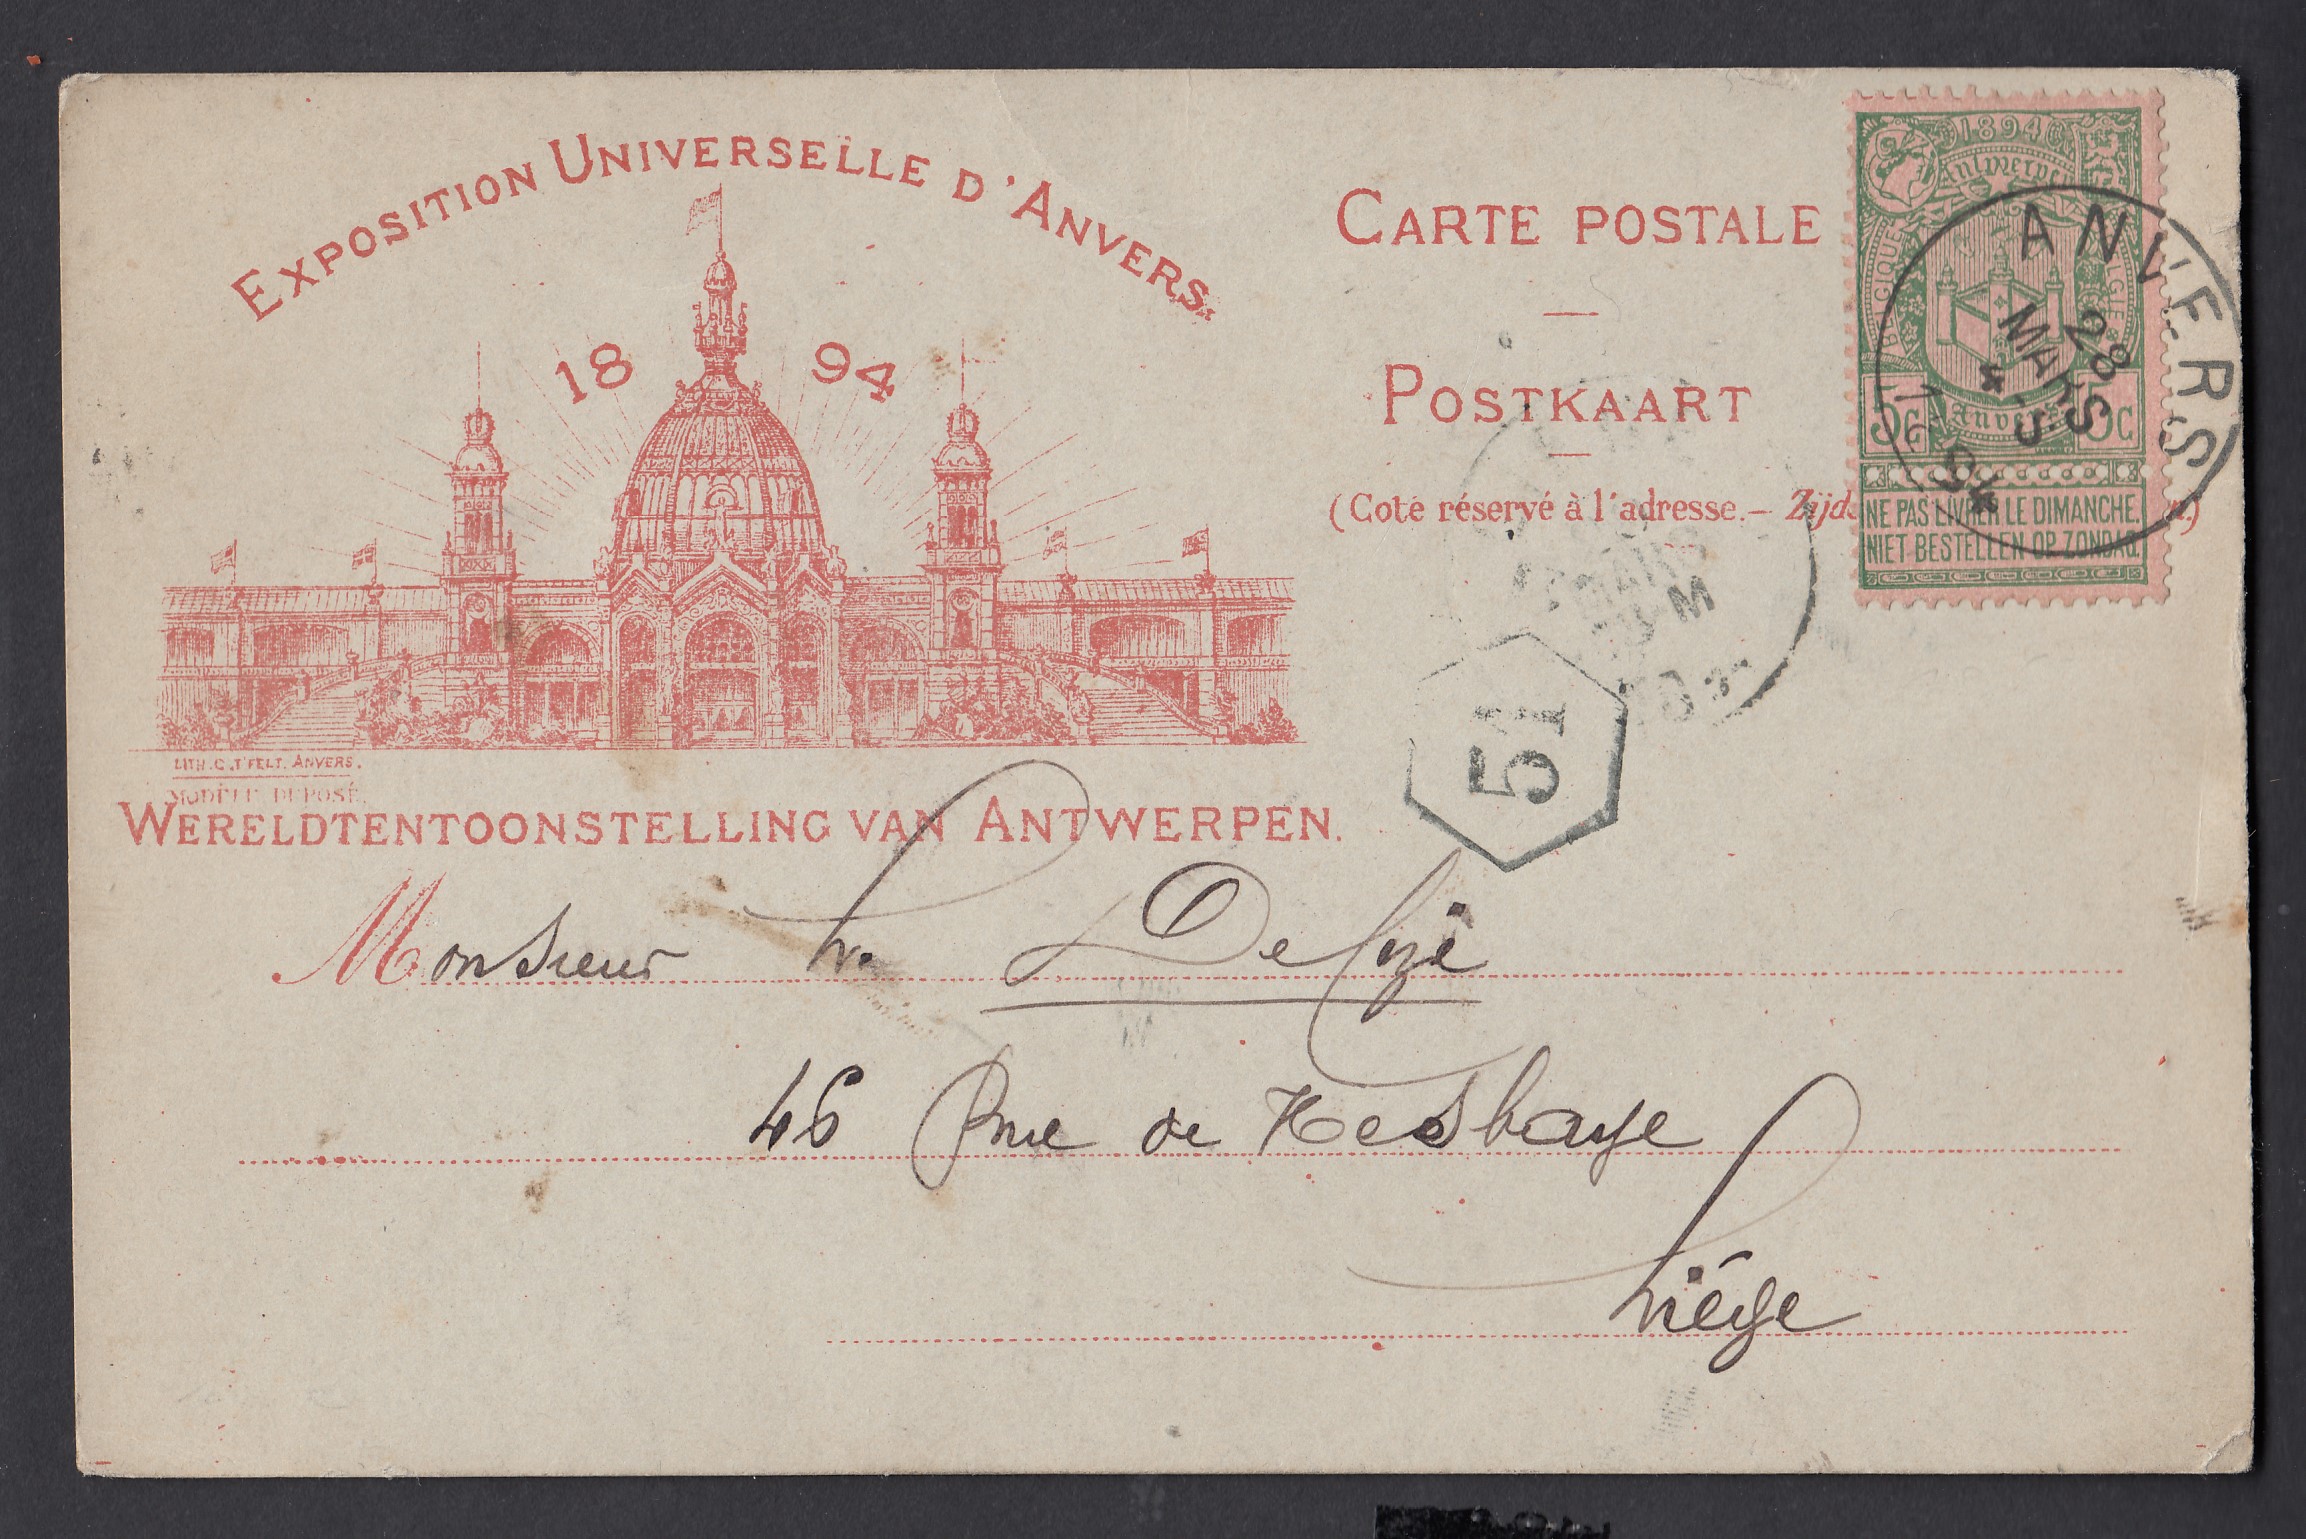 EXPOSITION UNIVERSELLE D'ANVERS.
18 94
LITH. C. T'FELT. ANVERS.
MODÈLE DEPOSÉ.
WERELDTENTOONSTELLING VAN ANTWERPEN.
CARTE POSTALE
POSTKAART
(Coté réservé à l'adresse.—
1894
Antwerpen
BELGIQUE
BELGIE
5c 5c
Anvers
NE PAS LIVRER LE DIMANCHE.
NIET BESTELLEN OP ZONDAG.
ANVERS
28
MARS
94
51
Monsieur
46 Rue de Hesbaye
Liége